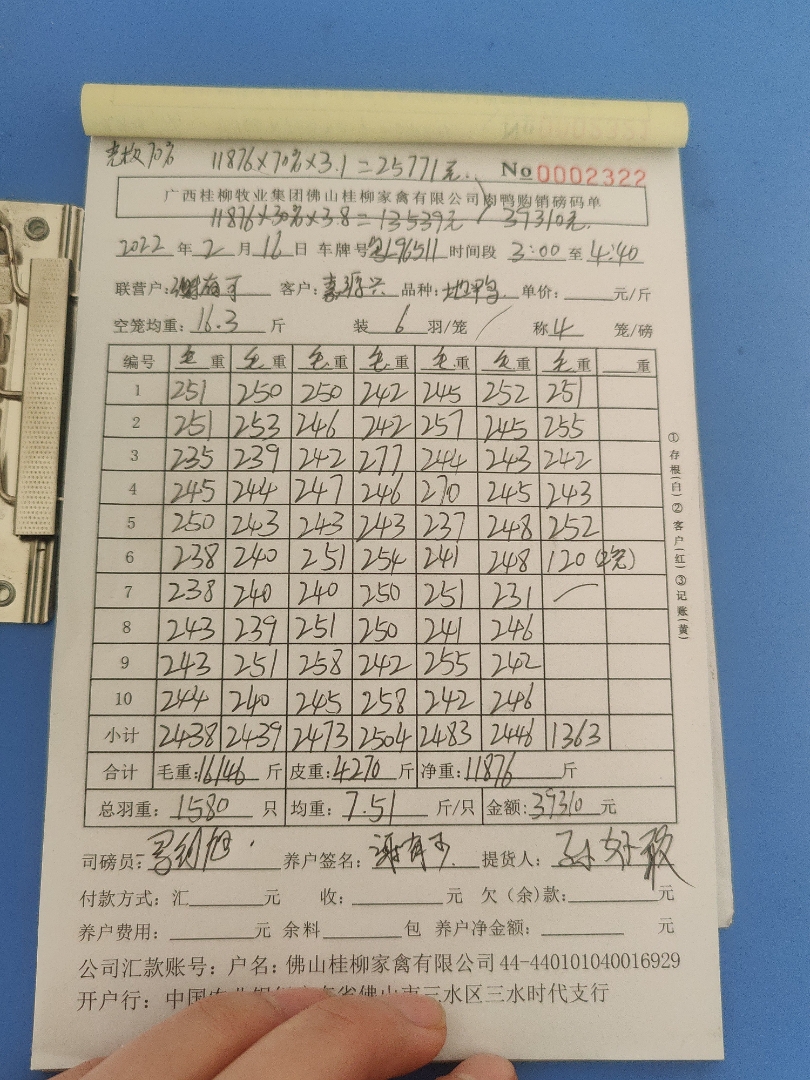 光板70% 11876×70%×3.1=25771元
No 0002322
广西桂柳牧业集团佛山桂柳家禽有限公司肉鸭购销磅码单
11876×30%×3.8=13539元 39310元
2022 年 2 月 16 日 车牌号 196511 时间段 3:00 至 4:40
联营户: 谢有可 客户: 嘉源兴 品种: 地鸭 单价: 元/斤
空笼均重: 16.3 斤 装 6 羽/笼 称 4 笼/磅
编号 毛重 毛重 毛重 毛重 毛重 毛重 毛重 重
1 251 250 250 242 245 252 251
2 251 253 246 242 257 245 255
3 235 239 242 277 244 243 242
4 245 244 247 246 270 245 243
5 250 243 243 243 237 248 252
6 238 240 251 254 241 248 120
7 238 240 240 250 251 231
8 243 239 251 250 241 246
9 243 251 258 242 255 242
10 244 240 245 258 242 246
小计 2438 2439 2473 2504 2483 2446 1363
合计 毛重: 16146 斤 皮重: 4270 斤 净重: 11876 斤
总羽重: 1580 只 均重: 7.51 斤/只 金额: 39310 元
司磅员: 养户签名: 谢有可 提货人:
付款方式: 汇 元 收: 元 欠(余)款: 元
养户费用: 元 余料 包 养户净金额: 元
公司汇款账号: 户名: 佛山桂柳家禽有限公司 44-440101040016929
开户行: 中国农业银行 省佛山市三水区三水时代支行
①存根(白)②客户(红)③记账(黄)